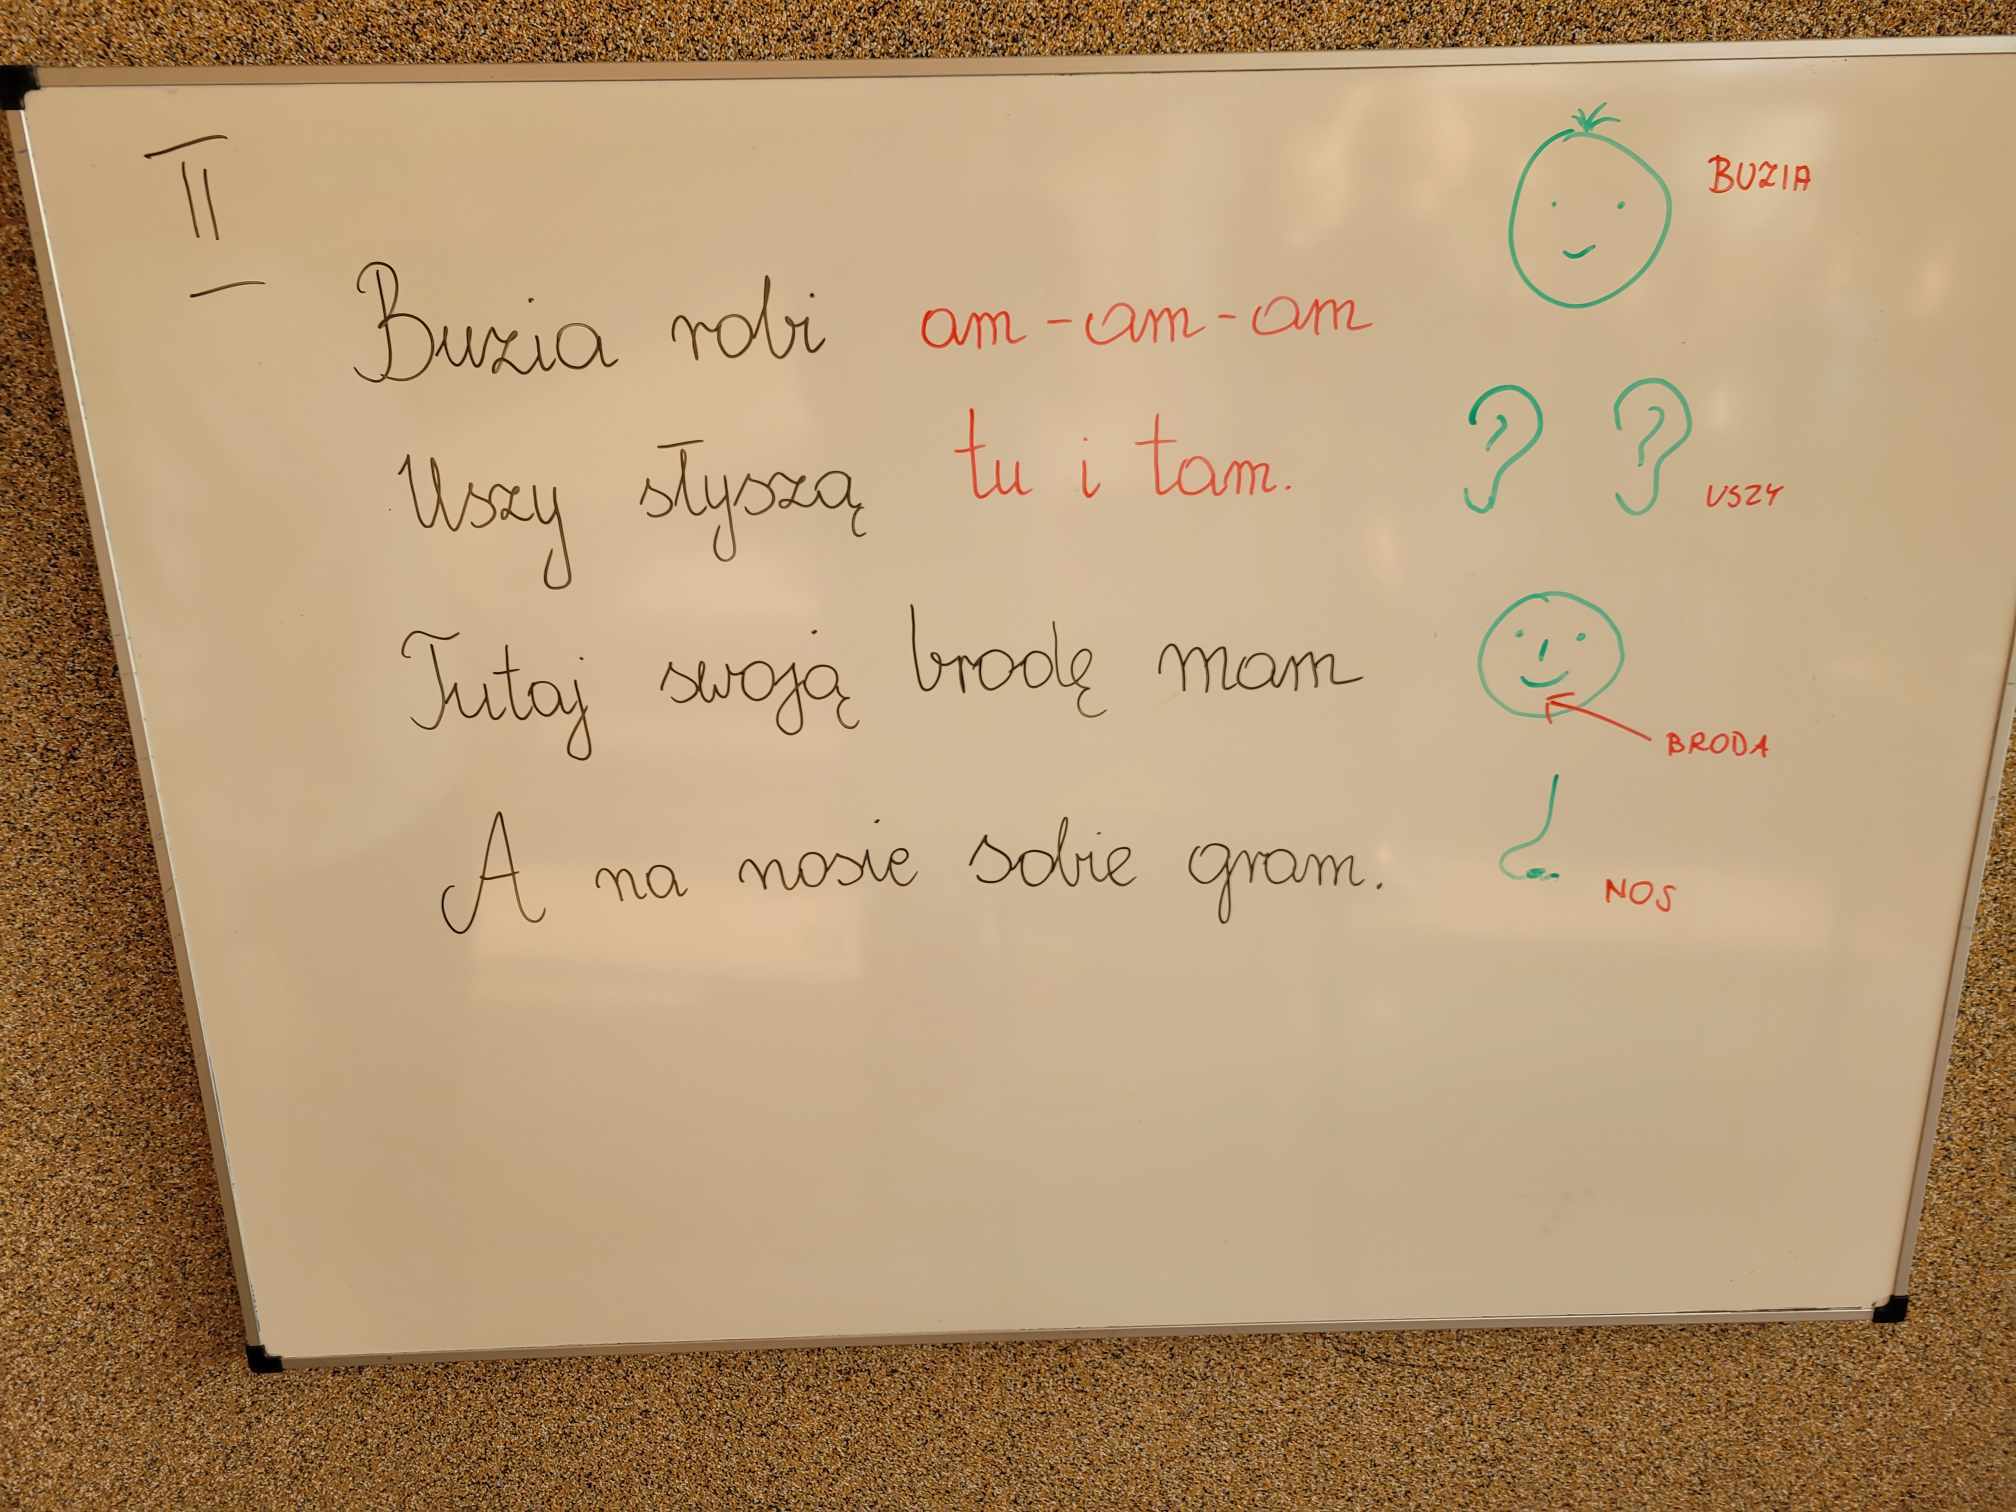 II
BUZIA
Buzia robi am-am-am
Uszy słyszą tu i tam.
USZY
Tutaj swoją brodę mam
BRODA
A na nosie sobie gram.
NOS